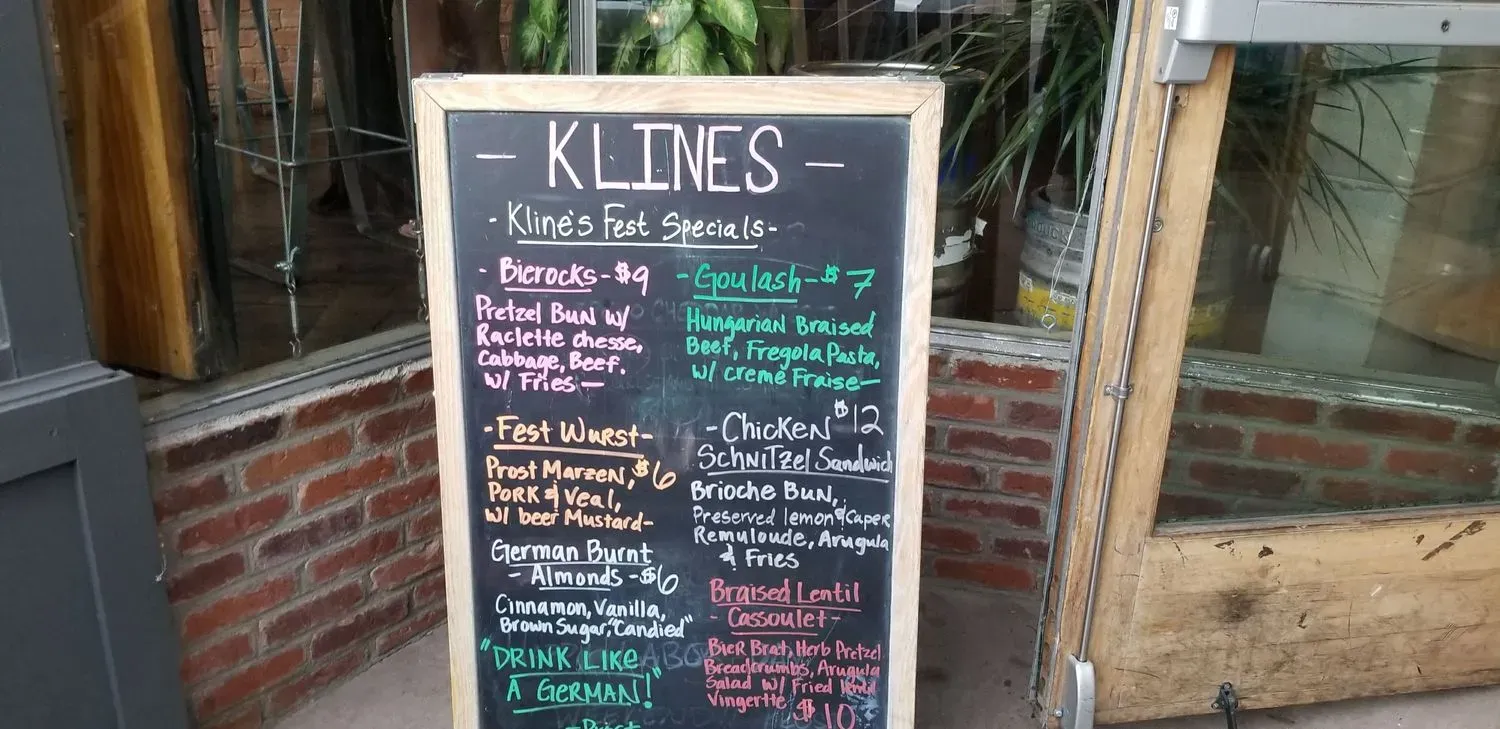 - KLINES -
- Kline's Fest Specials -
- Bierocks - $9
Pretzel Bun w/
Raclette chesse,
Cabbage, Beef.
w/ Fries -
- Fest Wurst -
Prost Marzen, $6
Pork & Veal,
w/ beer Mustard -
German Burnt
- Almonds - $6
Cinnamon, Vanilla,
Brown Sugar, "Candied"
"DRINK LIKE
A GERMAN!"
- Goulash - $7
Hungarian Braised
Beef, Fregola Pasta,
w/ creme Fraise -
- Chicken $12
Schnitzel Sandwich
Brioche Bun,
Preserved lemon & Caper
Remuloude, Arugula
& Fries
Braised Lentil
- Cassoulet -
Bier Brat, Herb Pretzel
Breadcrumbs, Arugula
Salad w/ Fried lentil
Vingertte $10